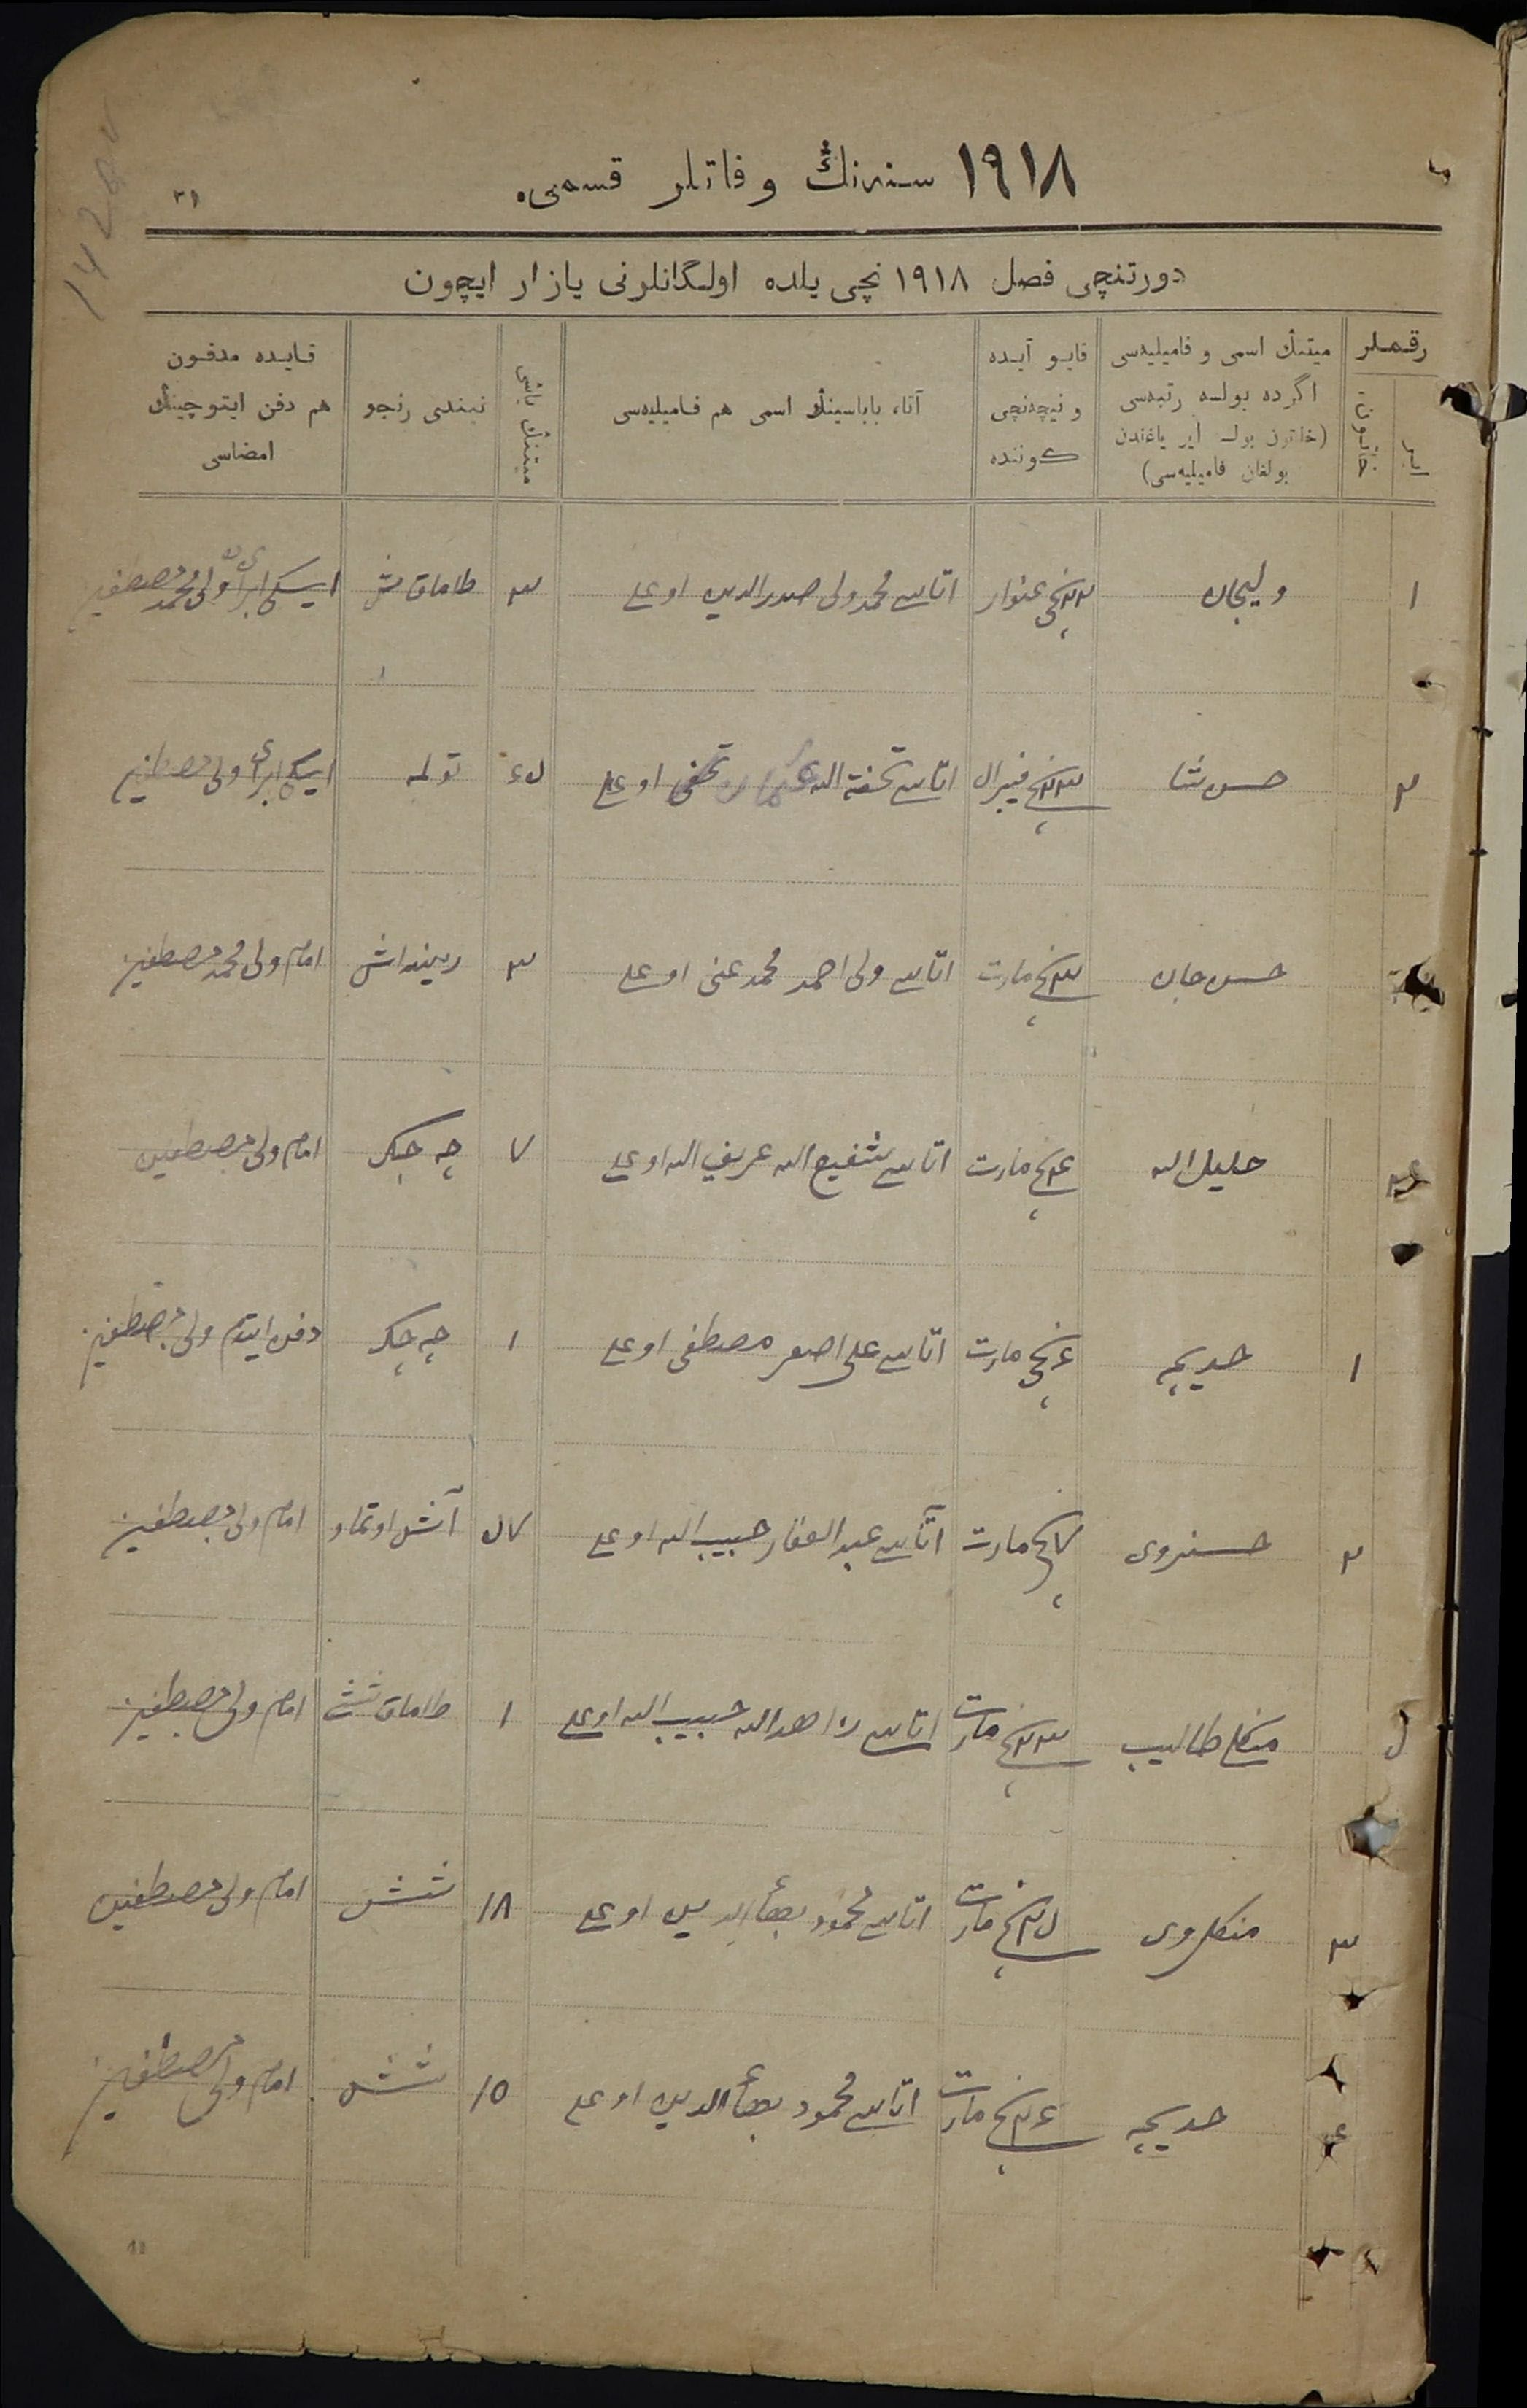 ١٩١٨ سنەنڭ وفاتلر قسمی.
٣١
دورتنچی فصل ١٩١٨ نچی یلده اولگانلرنی یازار ایچون
رقملر
ایر
خاتون
میتنڭ اسمی و فامیلیەسی اگرده بولسه رتبەسی (خاتون بولسه ایر یاغندن بولغان فامیلیەسی)
قایو آیده و نیچەنچی کوننده
آتا، باباسینڭ اسمی هم فامیلیەسی
میتنڭ یاشی
نیندی رنجو
قایده مدفون هم دفن ایتوچینڭ امضاسی
١ ولیجان ٢٢نچی عنوار اتاسی محمدولی صدرالدین اوغلی ٣ طاماق شش
٢ حسن شا ٢٣نچی فیبرال اتاسی تحفة الله اوغلی ٥٤ تولمه
حسن جان ٣نچی مارت اتاسی ولی احمد محمد غنی اوغلی ٣ امام ولی محمد مصطفین
خلیل الله مارت اتاسی شفیع الله عریف الله اوغلی ٧ چه چک امام ولی مصطفین
١ خدیجه ٤نچی مارت اتاسی علی اصغر مصطفی اوغلی ١ چه چک دفن ایتدم ولی مصطفین
٢ حسنروی ٧نچی مارت اتاسی عبدالغفار حبیب الله اوغلی ٥٧ امام ولی مصطفین
٥ منکلی طالیب ٢٣نچی مارت اتاسی حبیب الله اوغلی ١ طاماق شش امام ولی مصطفین
٣ منکلروی ٢٥نچی مارت اتاسی محمود بهاءالدین اوغلی ١٨ شش امام ولی مصطفین
٤ خدیجه ٢٤نچی مارت اتاسی محمود بهاءالدین اوغلی ١٥ شش امام ولی مصطفین